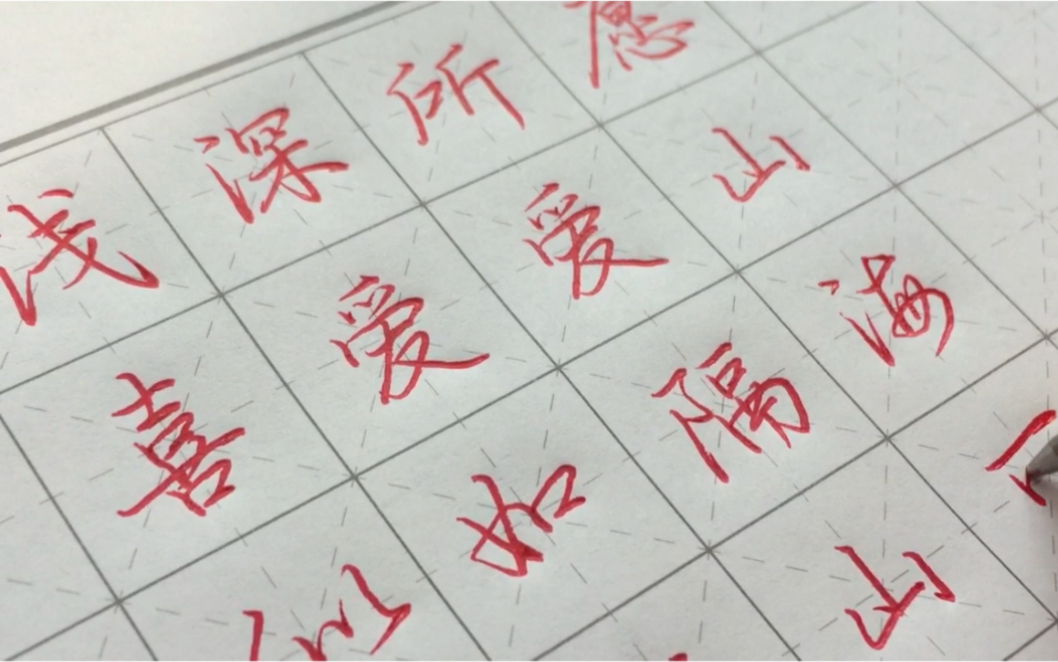 浅喜似
深爱如
所爱隔山
愿山海